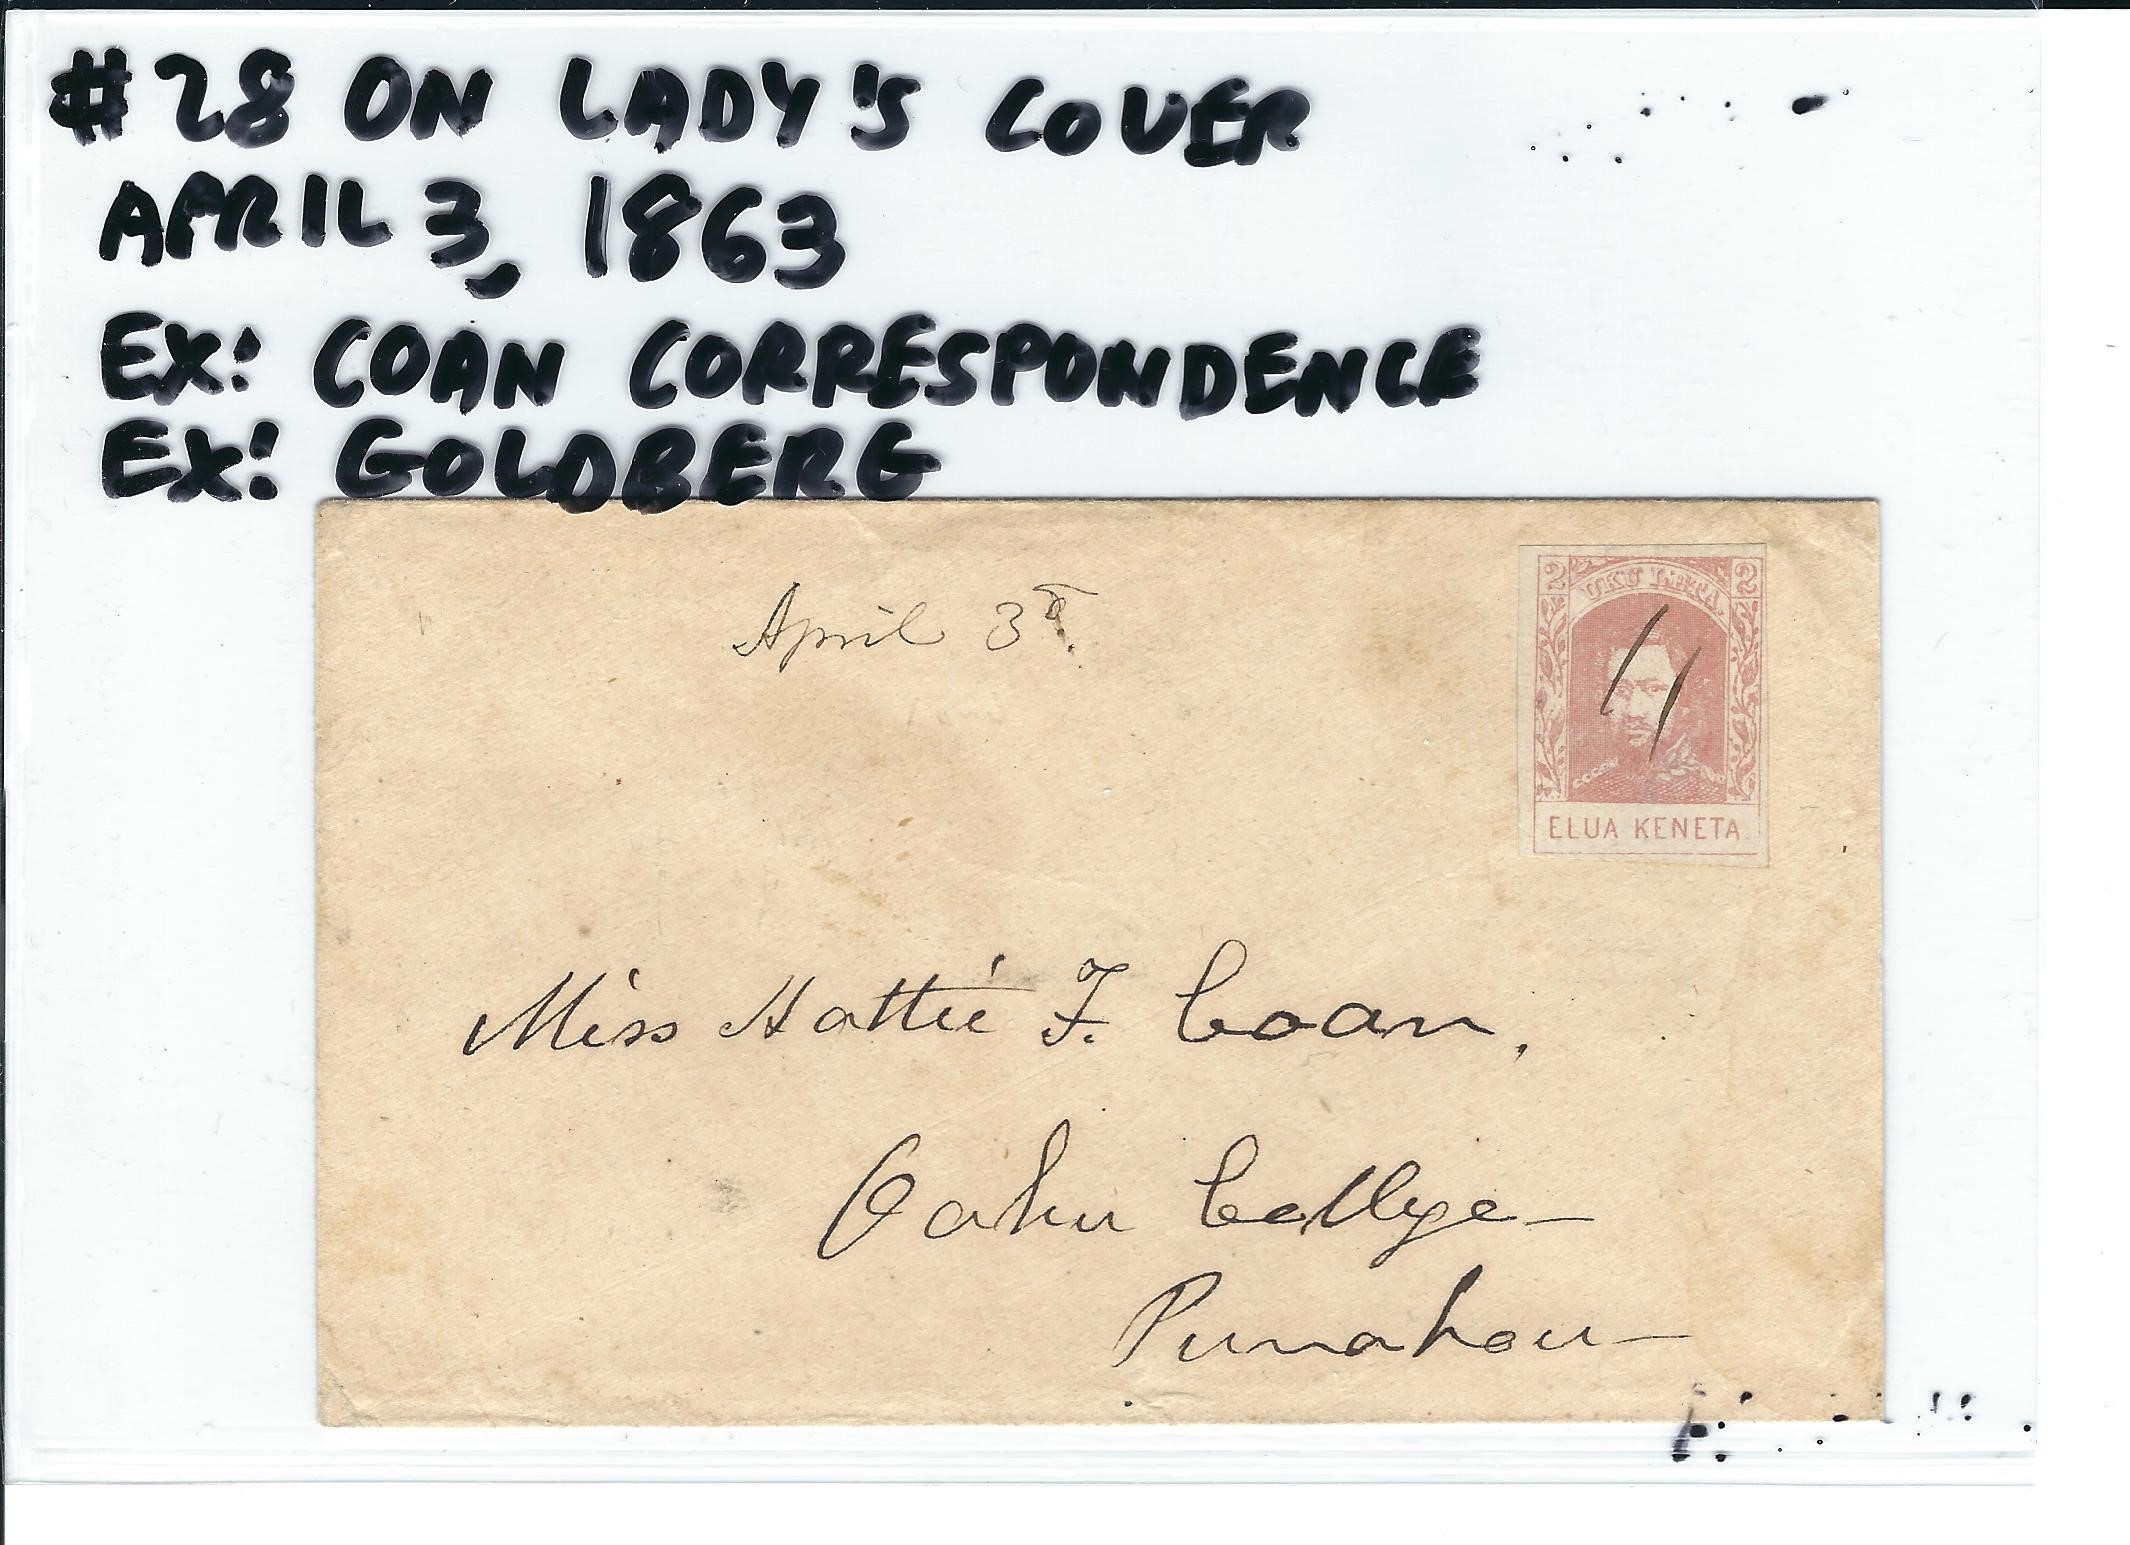 #28 ON LADY'S COVER
APRIL 3, 1863
EX: COAN CORRESPONDENCE
EX: GOLDBERG
April 3d.
2 UKU LETA. 2
ELUA KENETA
Miss Hattie F. Coan,
Oahu College—
Punahou—